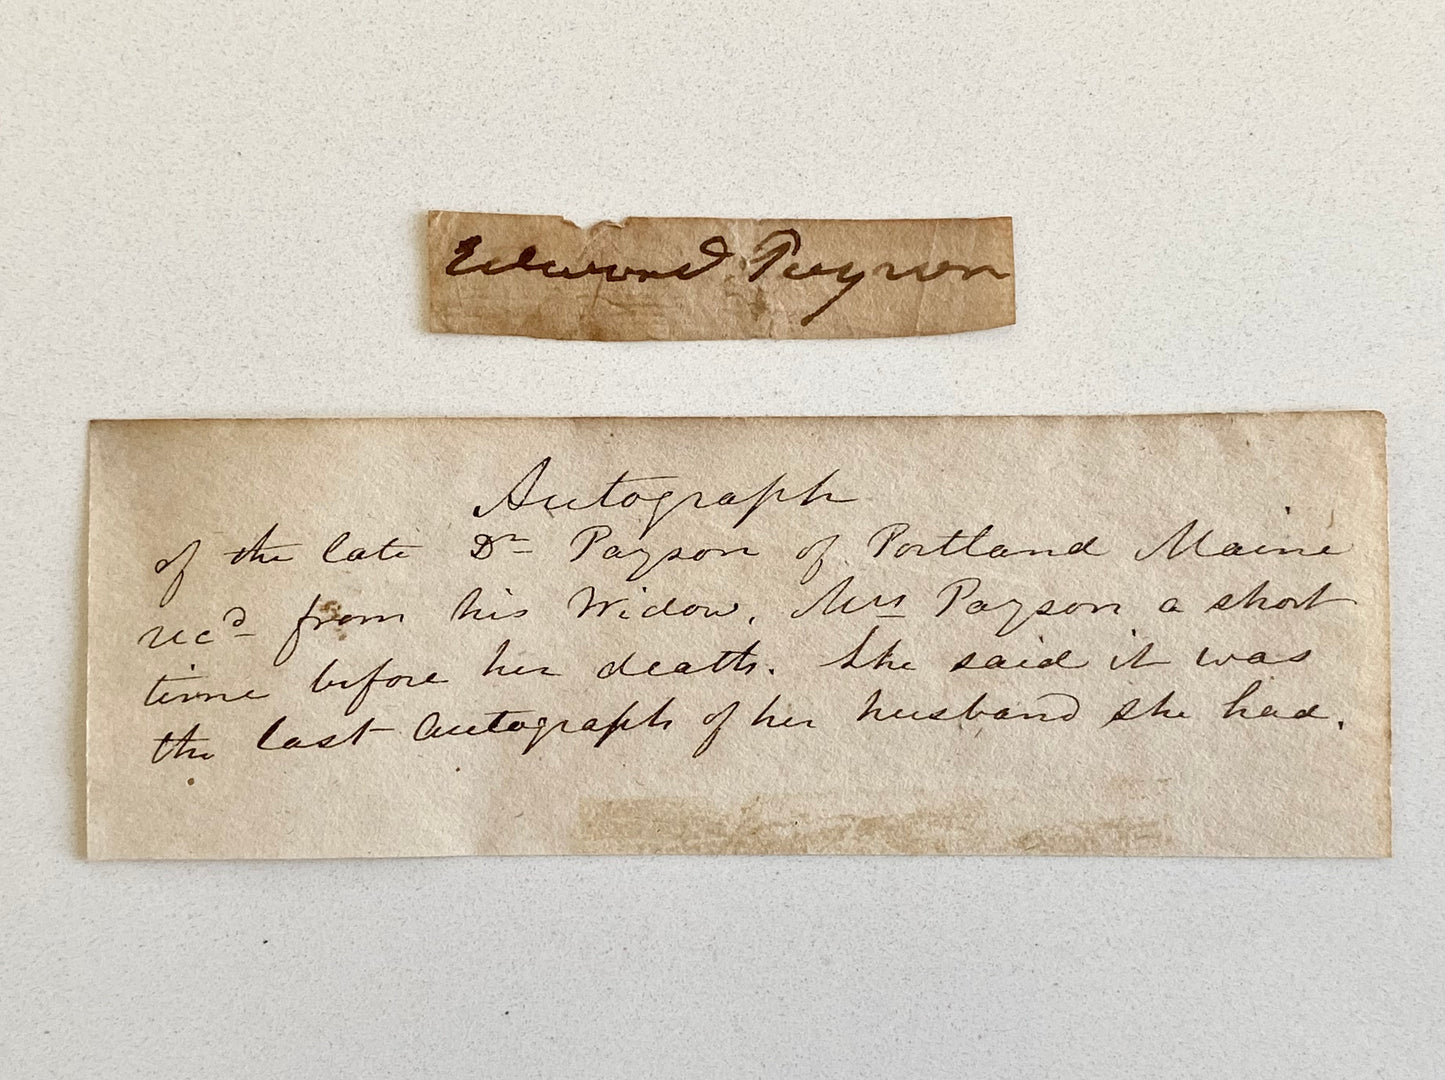 Edward Payson
Autograph
of the late Dr Payson of Portland Maine
recd from his Widow, Mrs Payson a short
time before her death. She said it was
the last autograph of her husband she had.